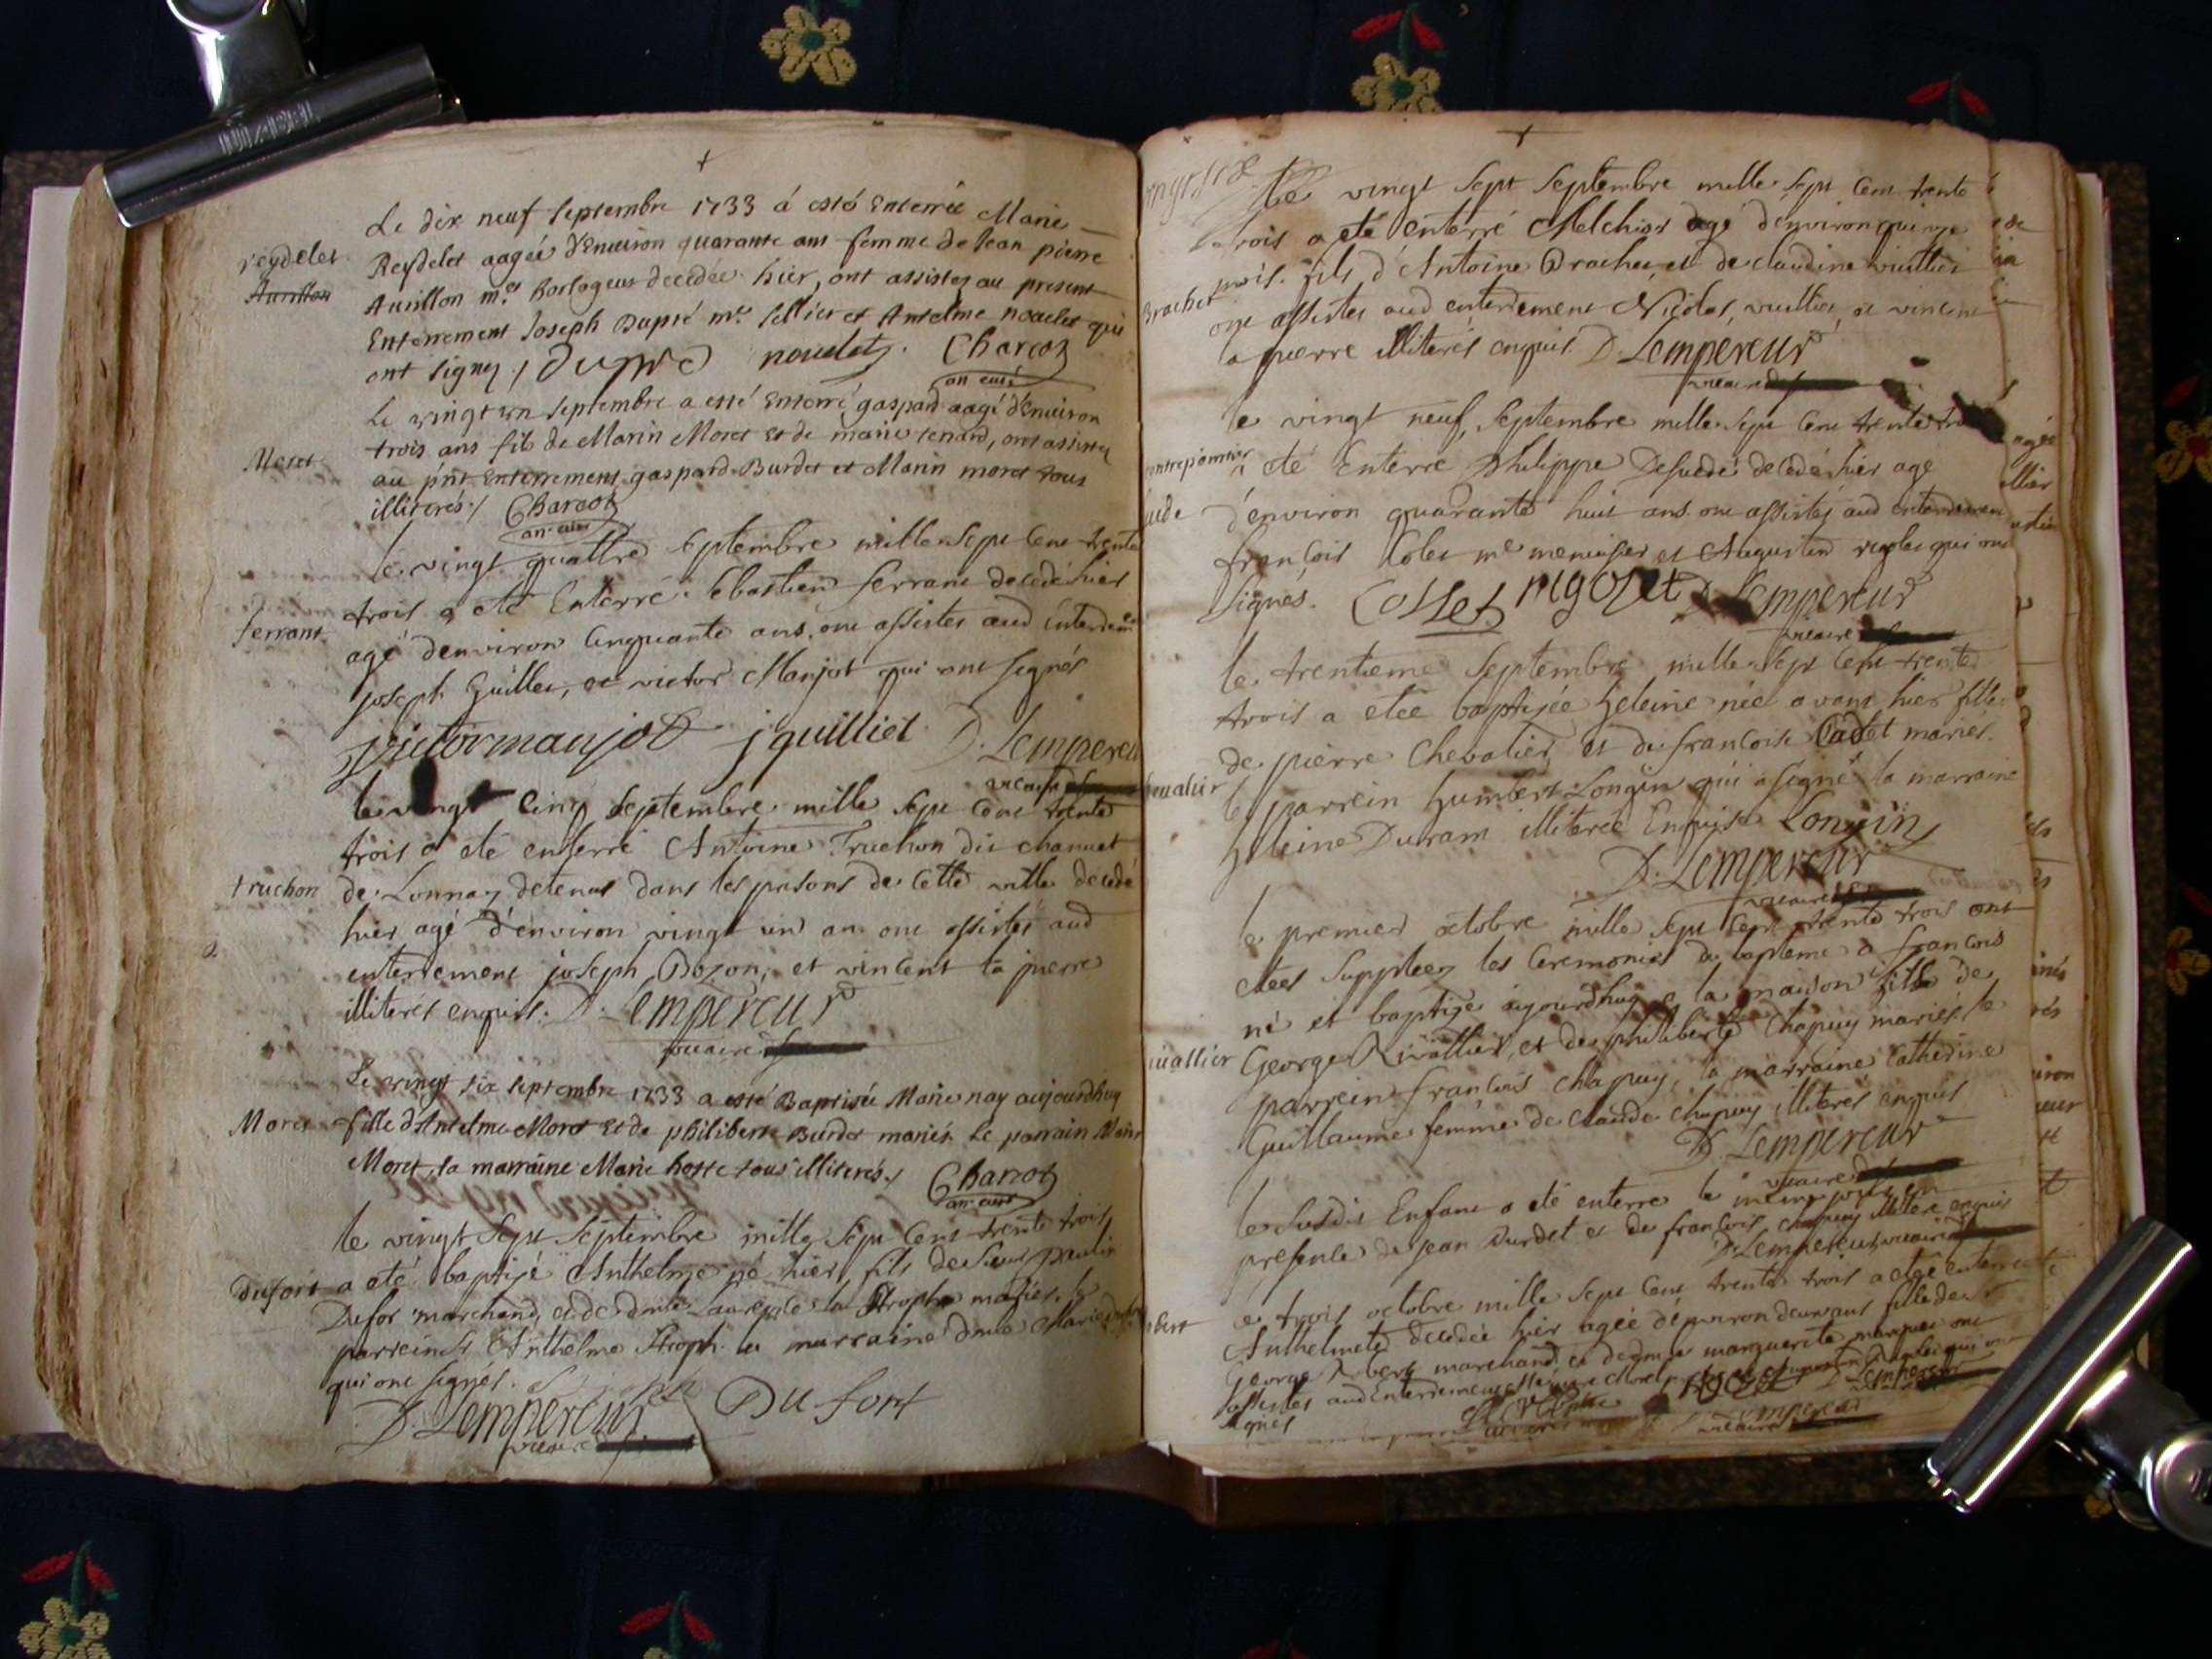 Le dix neuf septembre 1733 á esté Enterrée Marie
reydelet
Reydelet aagée d'Enuiron quarante ans femme de Jean pierre
Aurillon
Aurillon me. horlogeur decedée hier, ont assistez au present
Enterrement Joseph Dupré me. sellier et Antelme noudet qui
ont signez / Dupré noudet Charcot
an. curé
Le vingt un septembre a esté Enterré gaspard aagé d'Enuiron
trois ans fils de Marin Moret et de marie renard, ont assistez
Moret
au pnt. Enterrement gaspard Burdet et Marin moret tous
illiterés / Charcot
an. curé
le vingt quattre septembre mille sept cent trente
trois a eté Enterré Sebastien ferrant decedé hier
ferrant
agé d'environ Cinquante ans, ont assistés aud Enterrement
joseph Guillet, et victor Manjot qui ont signés
victor manjot j guilliet D. Lempereur
vicaire
le vingt cinq septembre mille sept cent trente
trois a eté enterré Antoine Truchon dit chanuet
truchon
de Lonnay detenus dans les prisons de Cette ville decedé
hier agé d'environ vingt un an ont assistés aud
enterrement joseph Bozon, et vincent la pierre
illiteres enquis. D. Lempereur
vicaire
Le vingt six septembre 1733 a esté Baptisée Marie nay aujourdhuy
Moret
fille d'Antelme Moret et de philiberte Burdet mariés. Le parrain
Moret, la marraine Marie hoste tous illiterés /
Charcot
an. curé
le vingt sept septembre mille sept cent trente trois
dufort
a eté baptisé Anthelme né hier, fils de Sieur paulin
Dufor marchand, et de dmlle Laure de la Stroph mariés. le
parrein Sr Anthelme Stroph. la marraine dmlle Marie
qui ont signés.
D. Lempereur Du fort
vicaire
Le vingt sept septembre mille sept cent trente
trois a eté enterré Melchior agé d'environ quinze
mois. fils d'Antoine Brachet et de claudine vuillier
Brachet
ont assistés aud enterrement Nicolas vuillier, et vincent
la pierre illiterés enquis. D. Lempereur
vicaire
le vingt neuf septembre mille sept cent trente
a eté Enterré Philippe decedé hier agé
d'environ quarante huit ans ont assistés aud enterrement
françois Colet me menuisier et Augustin rigolet qui ont
signés. Collet rigolet D. Lempereur
vicaire
le trentieme septembre mille sept cent trente
trois a etée baptisée heleine née avant hier fille
de pierre Chevalier et de françoise Cadet mariés.
le parrein humbert Longin qui a signé la marraine
heleine Duram illiterée Enquise Longin
D. Lempereur
vicaire
le premier octobre mille sept cent trente trois ont
etées suppléez les Ceremonies du bapteme a françois
né et baptisé aujourdhuy a la maison fils de
George Rivallier, et de philiberte Chapuy mariés. le
parrein françois chapuy, la marraine Catherine
Guillaume femme de claude chapuy illiterés enquis
D. Lempereur
vicaire
le susdit Enfant a eté enterre le meme jour en
presence de jean Burdet et de françois chapuy illitere enquis
D. Lempereur vicaire
le trois octobre mille sept cent trente trois a eté enterrée
Anthelmete decedée hier agée d'environ deux ans fille de
George Robert marchand et de dmlle marguerite
assistés aud Enterrement
signés
D. Lempereur
vicaire